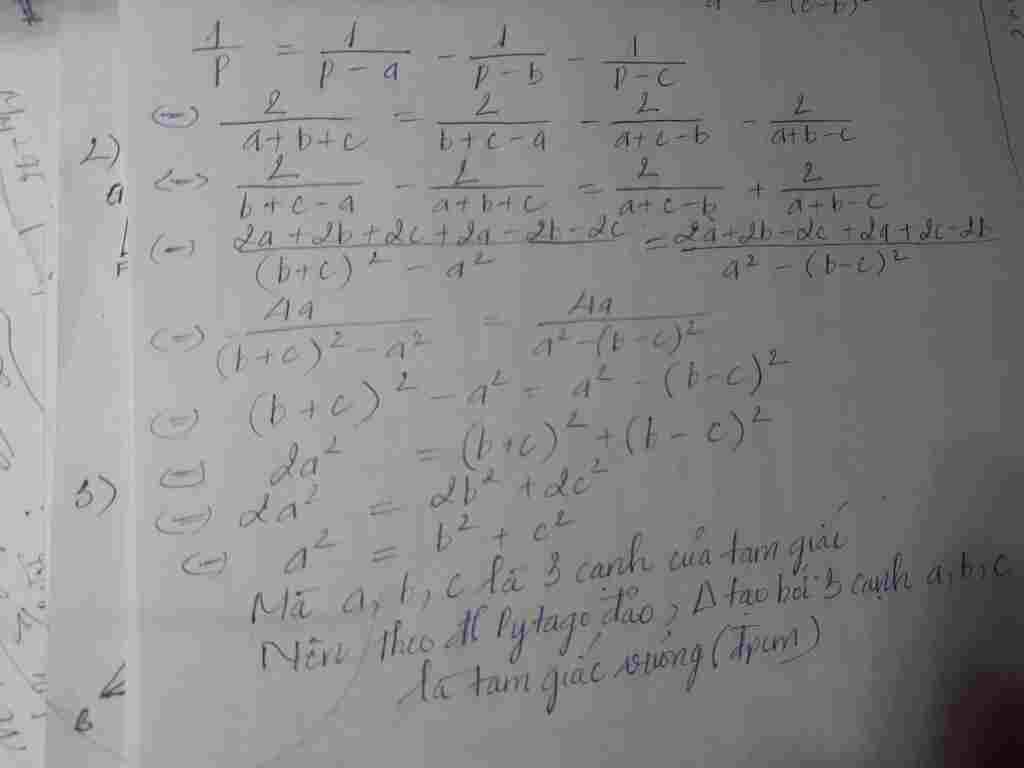 1/p = 1/(p - a) - 1/(p - b) - 1/(p - c)
(=) 2/(a+b+c) = 2/(b+c-a) - 2/(a+c-b) - 2/(a+b-c)
2)
a
<=> 2/(b+c-a) - 2/(a+b+c) = 2/(a+c-b) + 2/(a+b-c)
(=) (2a+2b+2c+2a-2b-2c)/((b+c)² - a²) = (2a+2b-2c+2a+2c-2b)/(a² - (b-c)²)
(=) 4a/((b+c)² - a²) = 4a/(a² - (b-c)²)
(=) (b+c)² - a² = a² - (b-c)²
(=) 2a² = (b+c)² + (b-c)²
3)
(=) 2a² = 2b² + 2c²
(=) a² = b² + c²
Mà a, b, c là 3 cạnh của tam giác
Nên theo đl Pytago đảo, Δ tạo bởi 3 cạnh a, b, c
là tam giác vuông (đpcm)